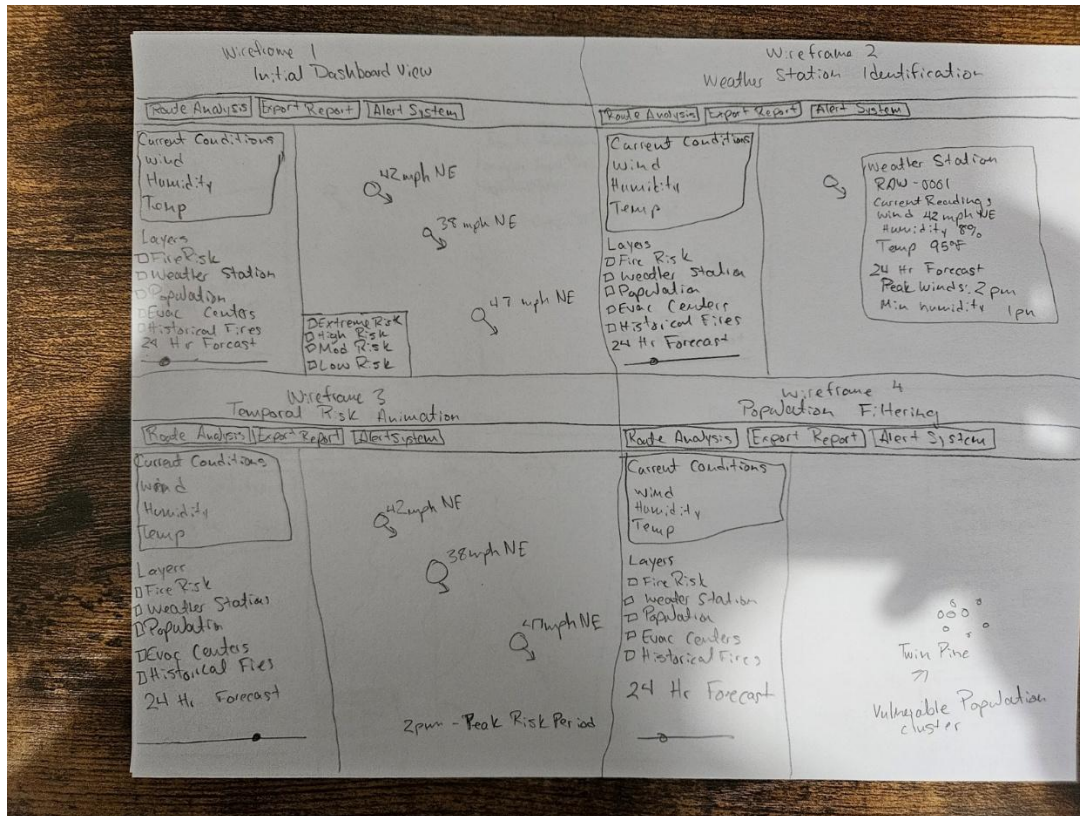 Wireframe 1
Initial Dashboard View
Route Analysis Export Report Alert System
Current Conditions
Wind
Humidity
Temp
Layers
Fire Risk
Weather Station
Population
Evac Centers
Historical Fires
24 Hr Forcast
42 mph NE
38 mph NE
47 mph NE
Extreme Risk
High Risk
Mod Risk
Low Risk
Wireframe 2
Weather Station Identification
Route Analysis Export Report Alert System
Current Conditions
Wind
Humikity
Temp
Layers
Fire Risk
Weather Station
Population
Evac Centers
Historical Fires
24 Hr Forecast
Weather Station
RAW-0001
Current Readings
Wind 42 mph NE
Humidity 8%
Temp 95°F
24 Hr Forecast
Peak Winds: 2 pm
Min humidity 1pm
Wireframe 3
Temporal Risk Animation
Route Analysis Export Report Alert System
Current Conditions
Wind
Humidity
Temp
Layers
Fire Risk
Weather Stations
Population
Evac Centers
Historical Fies
24 Hr Forecast
42mph NE
38mph NE
47mph NE
2pm - Peak Risk Period
Wireframe 4
Population Filtering
Route Analysis Export Report Alert System
Current Conditions
Wind
Humidity
Temp
Layers
Fire Risk
Weater Station
Population
Evac Centers
Historical Fires
24 Hr Forecast
Twin Pine
Vulnerable Population
cluster